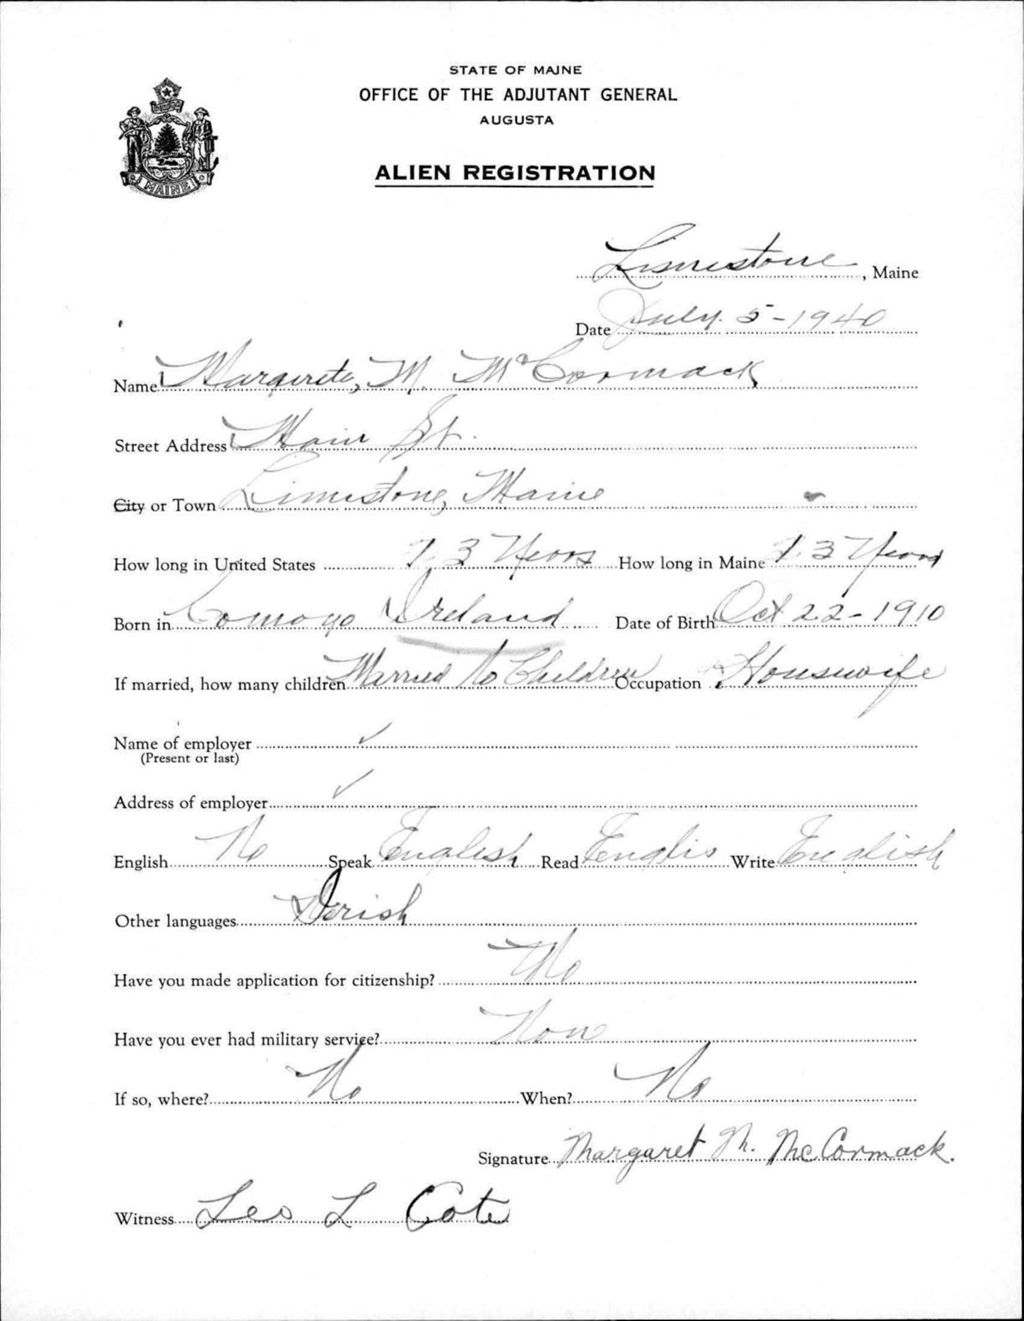 STATE OF MAINE
OFFICE OF THE ADJUTANT GENERAL
AUGUSTA
ALIEN REGISTRATION
MAINE
Limestone, Maine
Date July 5-1940
Name Margirete, M. McCormack
Street Address Main St.
City or Town Limestone, Maine
How long in United States 13 Years How long in Maine 13 Years
Born in Ireland Date of Birth Oct 22-1910
If married, how many children Married No Children Occupation Housewife
Name of employer ✓
(Present or last)
Address of employer ✓
English No Speak English Read Englis Write English
Other languages Irish
Have you made application for citizenship? No
Have you ever had military service? Non
If so, where? No When? No
Signature Margaret M. McCormack.
Witness Leo L Cote